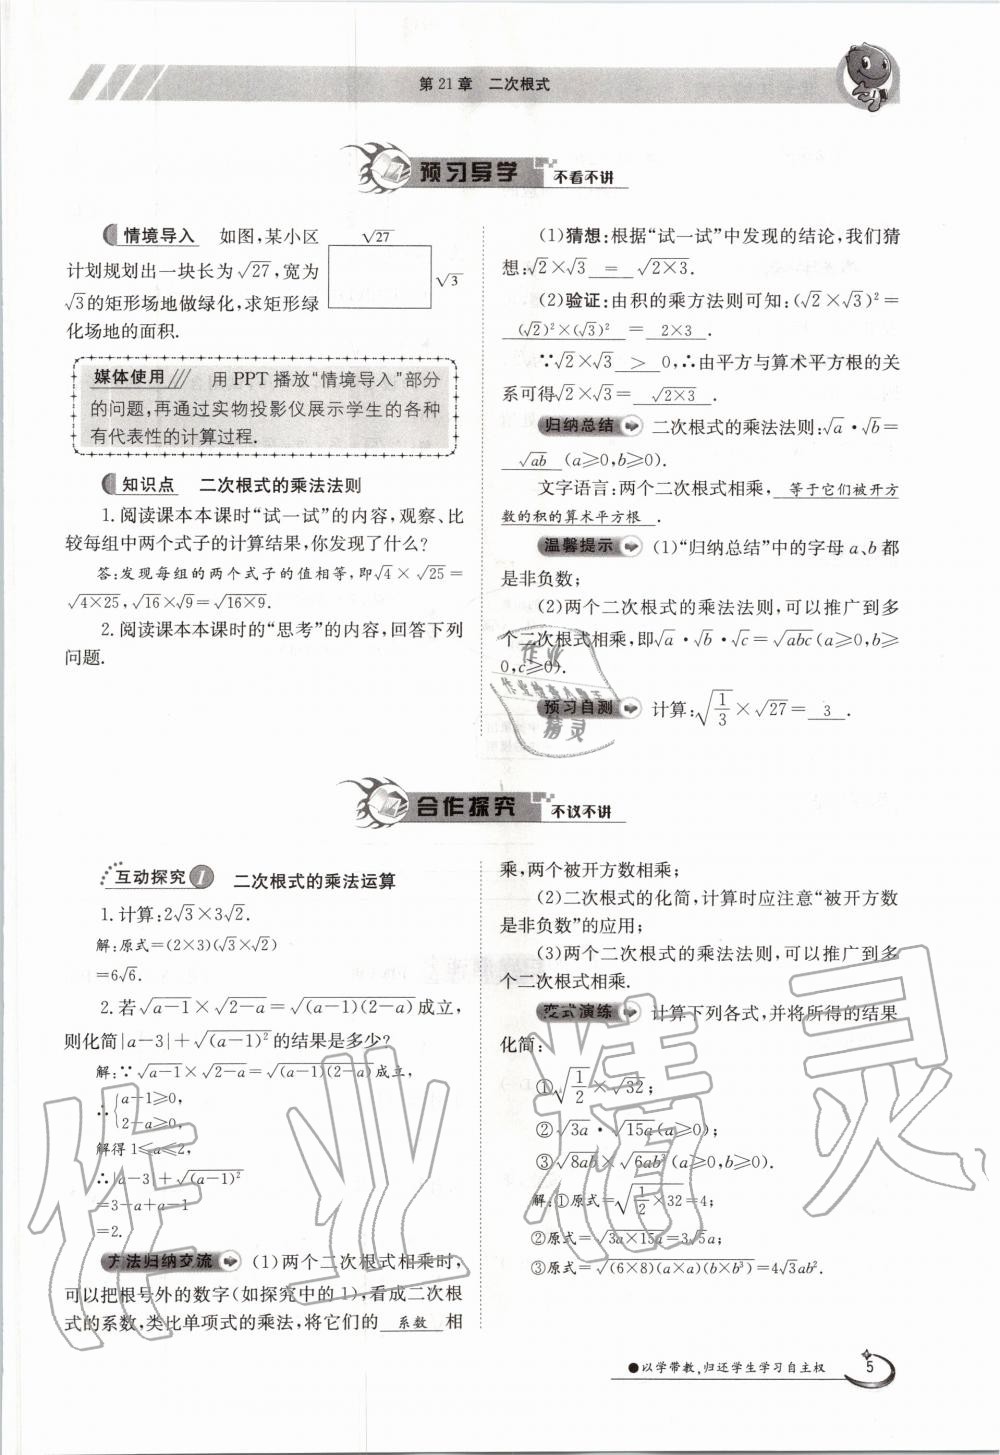 第21章　二次根式
预习导学　不看不讲
情境导入　如图,某小区
计划规划出一块长为√27,宽为
√3的矩形场地做绿化,求矩形绿
化场地的面积.
√27
√3
媒体使用　用PPT播放“情境导入”部分
的问题,再通过实物投影仪展示学生的各种
有代表性的计算过程.
知识点　二次根式的乘法法则
1.阅读课本本课时“试一试”的内容,观察、比
较每组中两个式子的计算结果,你发现了什么?
答:发现每组的两个式子的值相等,即√4×√25=
√(4×25),√16×√9=√(16×9).
2.阅读课本本课时的“思考”的内容,回答下列
问题.
(1)猜想:根据“试一试”中发现的结论,我们猜
想:√2×√3 = √(2×3).
(2)验证:由积的乘方法则可知:(√2×√3)²=
(√2)²×(√3)² = 2×3 .
∵√2×√3 > 0,∴由平方与算术平方根的关
系可得√2×√3= √(2×3) .
归纳总结　二次根式的乘法法则:√a·√b=
√(ab) (a≥0,b≥0).
文字语言:两个二次根式相乘, 等于它们被开方
数的积的算术平方根 .
温馨提示　(1)“归纳总结”中的字母a、b都
是非负数;
(2)两个二次根式的乘法法则,可以推广到多
个二次根式相乘,即√a·√b·√c=√(abc)(a≥0,b≥
0,c≥0).
预习自测　计算:√(1/3)×√27= 3 .
合作探究　不议不讲
互动探究1　二次根式的乘法运算
1.计算:2√3×3√2.
解:原式=(2×3)(√3×√2)
=6√6.
2.若√(a-1)×√(2-a)=√((a-1)(2-a))成立,
则化简|a-3|+√((a-1)²)的结果是多少?
解:∵√(a-1)×√(2-a)=√((a-1)(2-a))成立,
∴{a-1≥0,
2-a≥0,
解得1≤a≤2,
∴|a-3|+√((a-1)²)
=3-a+a-1
=2.
方法归纳交流　(1)两个二次根式相乘时,
可以把根号外的数字(如探究中的1),看成二次根
式的系数,类比单项式的乘法,将它们的 系数 相
乘,两个被开方数相乘;
(2)二次根式的化简,计算时应注意“被开方数
是非负数”的应用;
(3)两个二次根式的乘法法则,可以推广到多
个二次根式相乘.
变式演练　计算下列各式,并将所得的结果
化简:
①√(1/2)×√32;
②√(3a)·√(15a)(a≥0);
③√(8ab)×√(6ab³)(a≥0,b≥0).
解:①原式=√(1/2×32)=4;
②原式=√(3a×15a)=3√5a;
③原式=√((6×8)(a×a)(b×b³))=4√3ab².
●以学带教,归还学生学习自主权
5
作业精灵